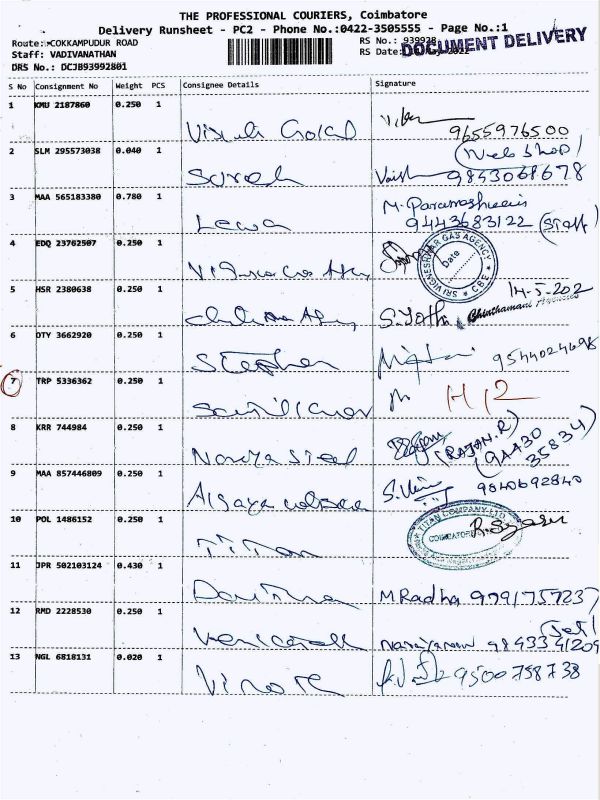 THE PROFESSIONAL COURIERS, Coimbatore
Delivery Runsheet - PC2 - Phone No.:0422-3505555 - Page No.:1
Route: COKKAMPUDUR ROAD
Staff: VADIVANATHAN
DRS No.: DCJB93992801
RS No.: 939928
RS Date:
DOCUMENT DELIVERY
S No Consignment No Weight PCS Consignee Details Signature
1 KMU 2187860 0.250 1
9655976500
2 SLM 295573038 0.040 1 Suresh
(Web Shop)
9843068678
3 MAA 565183380 0.780 1
M. Parameshwari
9443683122 (Staff)
4 EDQ 23762507 0.250 1
SRI VIGNESHWAR GAS AGENCY
Date
CBE
5 HSR 2380638 0.250 1
14-5-202
Chinthamani Agencies
6 OTY 3662920 0.250 1 Stephen
9544024698
7 TRP 5336362 0.250 1 Senthil Kumar
H12
8 KRR 744984 0.250 1
(RAJAN.R)
(94430
35834)
9 MAA 857446809 0.250 1
9840692840
10 POL 1486152 0.250 1 Titan
TITAN COMPANY LTD
COIMBATORE
11 JPR 502103124 0.430 1
M Radha 9791757237
12 RMD 2228530 0.250 1
Narayanan 9843341209
13 NGL 6818131 0.020 1 Vinoth
9500758738